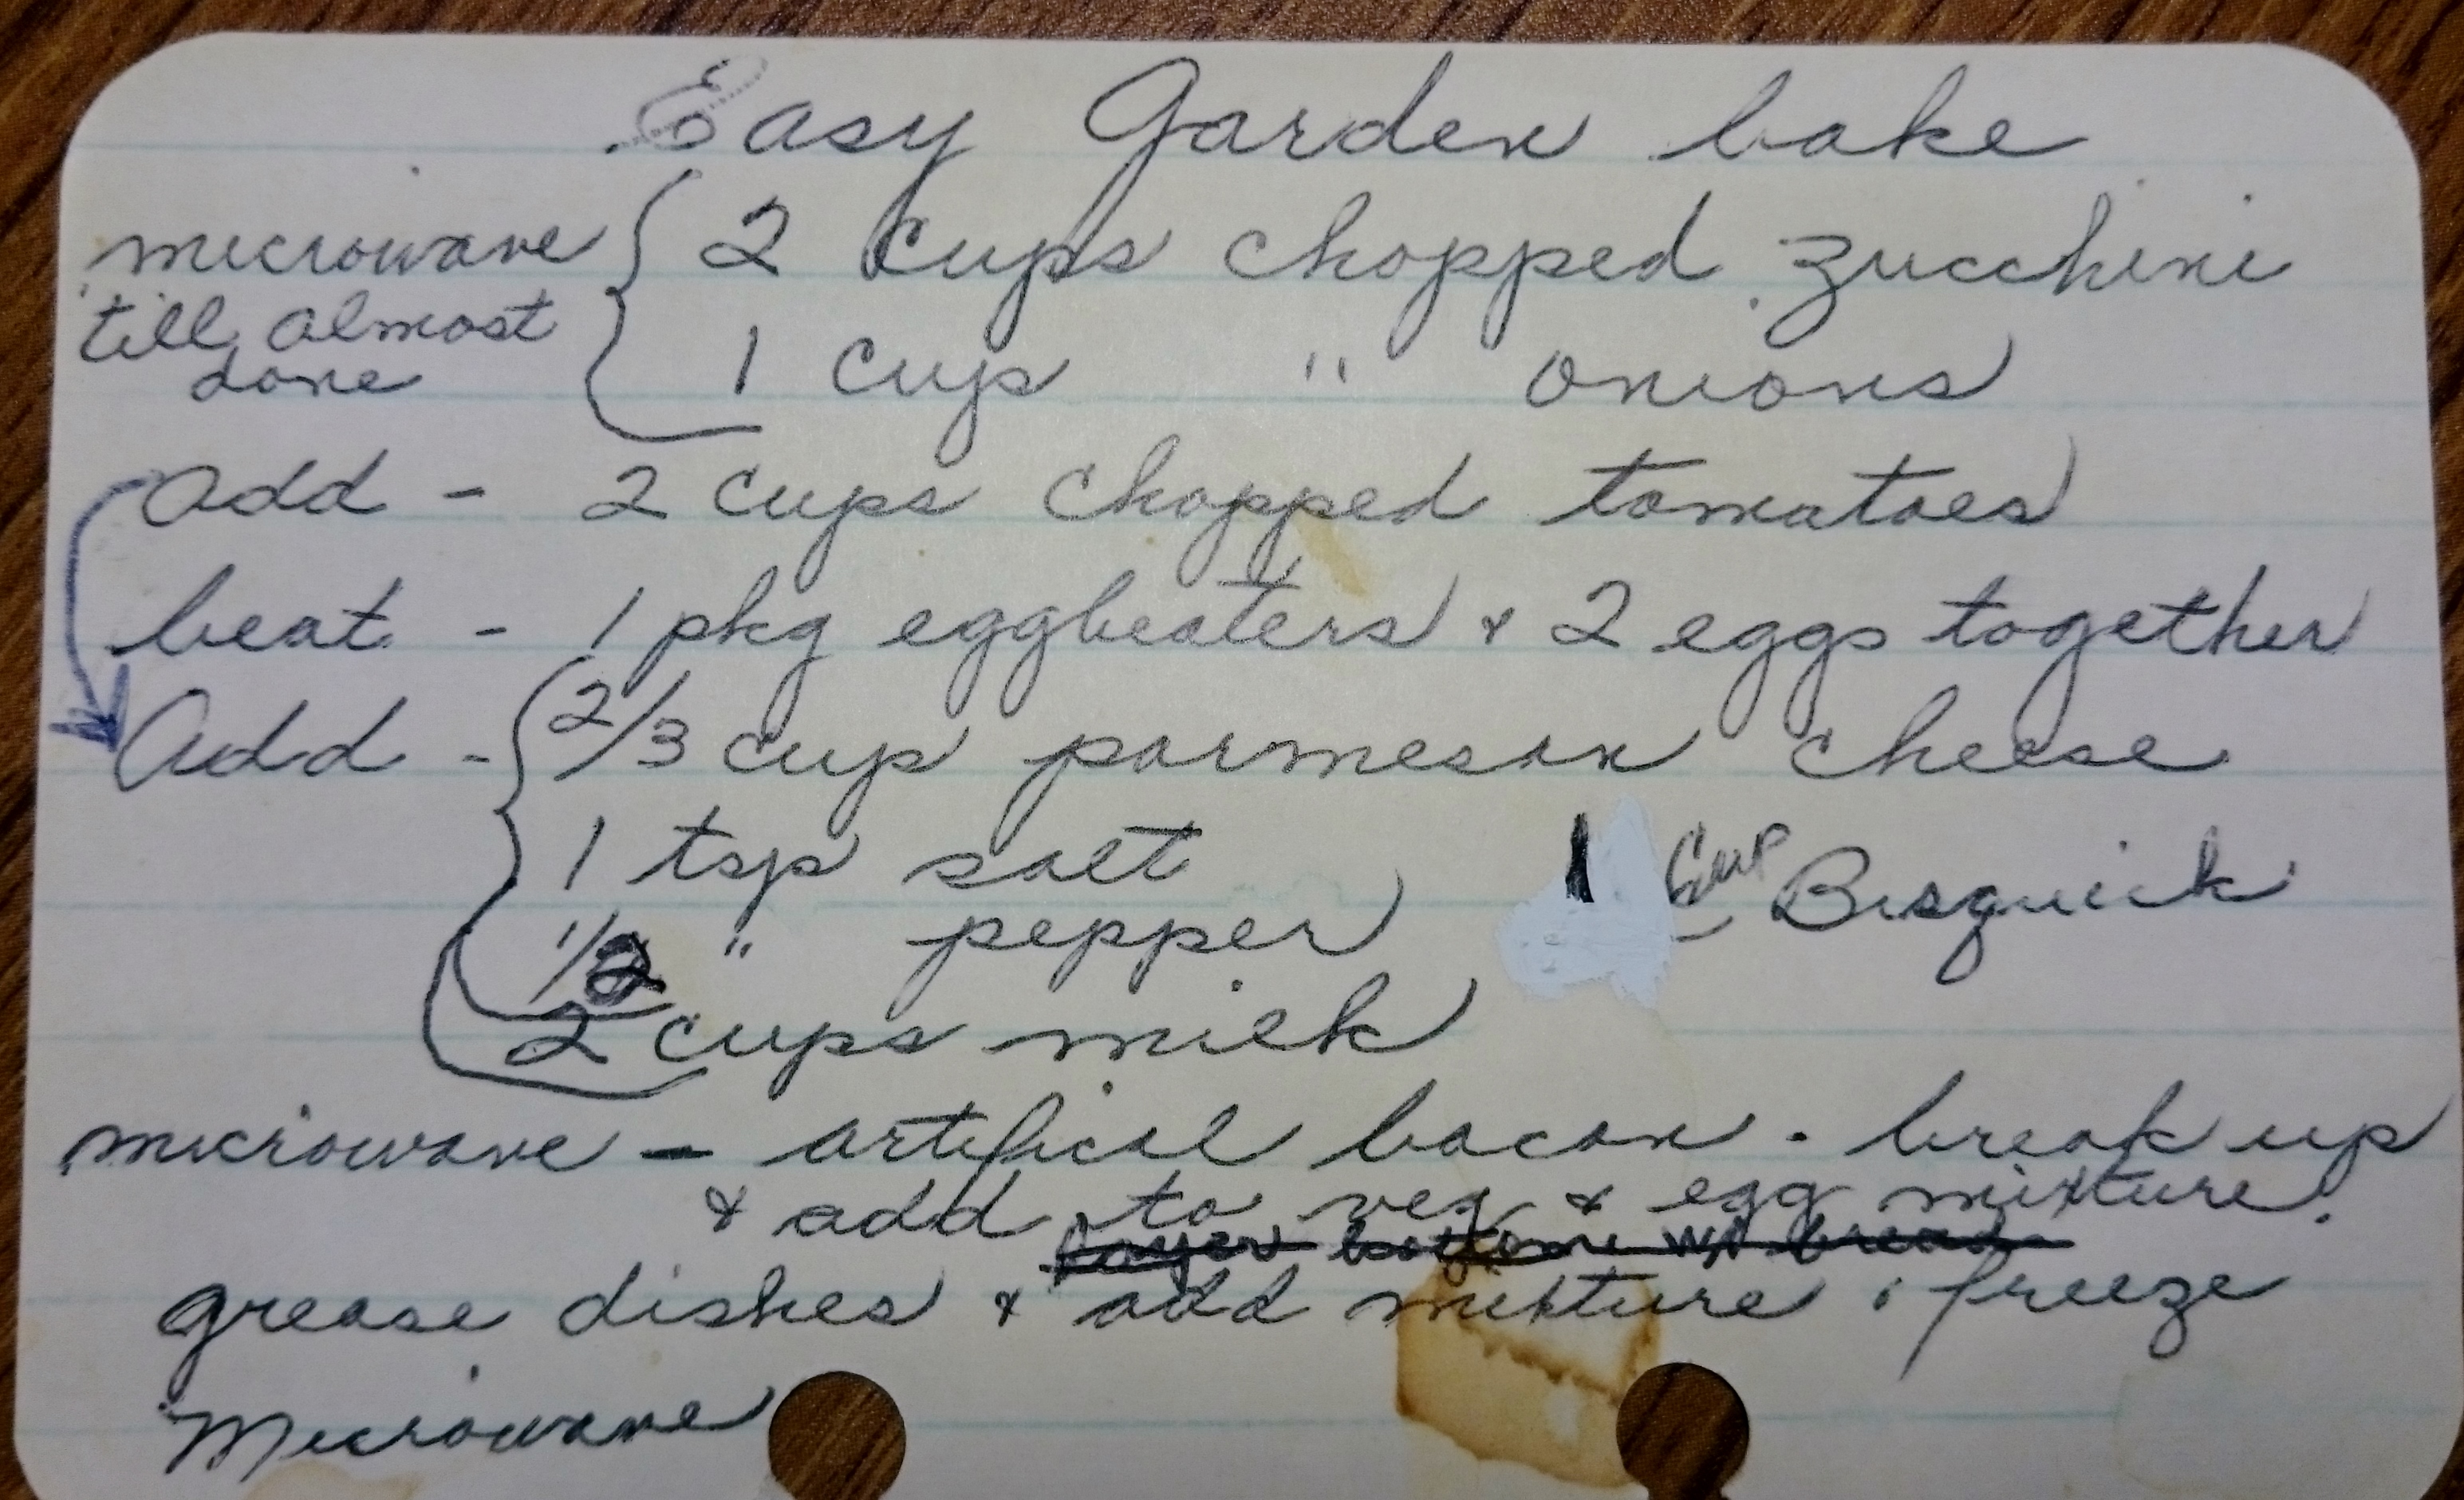 Easy Garden bake
microwave 'till almost done { 2 cups chopped zucchini
1 cup " onions
add - 2 cups chopped tomatoes
beat - 1 pkg eggbeaters & 2 eggs together
Add - { 2/3 cup parmesan cheese
1 tsp salt
1 cup Bisquick
1/2 " pepper
2 cups milk
microwave - artifical bacon - break up
& add to veg & egg mixture.
Layer bottom w/ bread
grease dishes & add mixture; freeze
Microwave